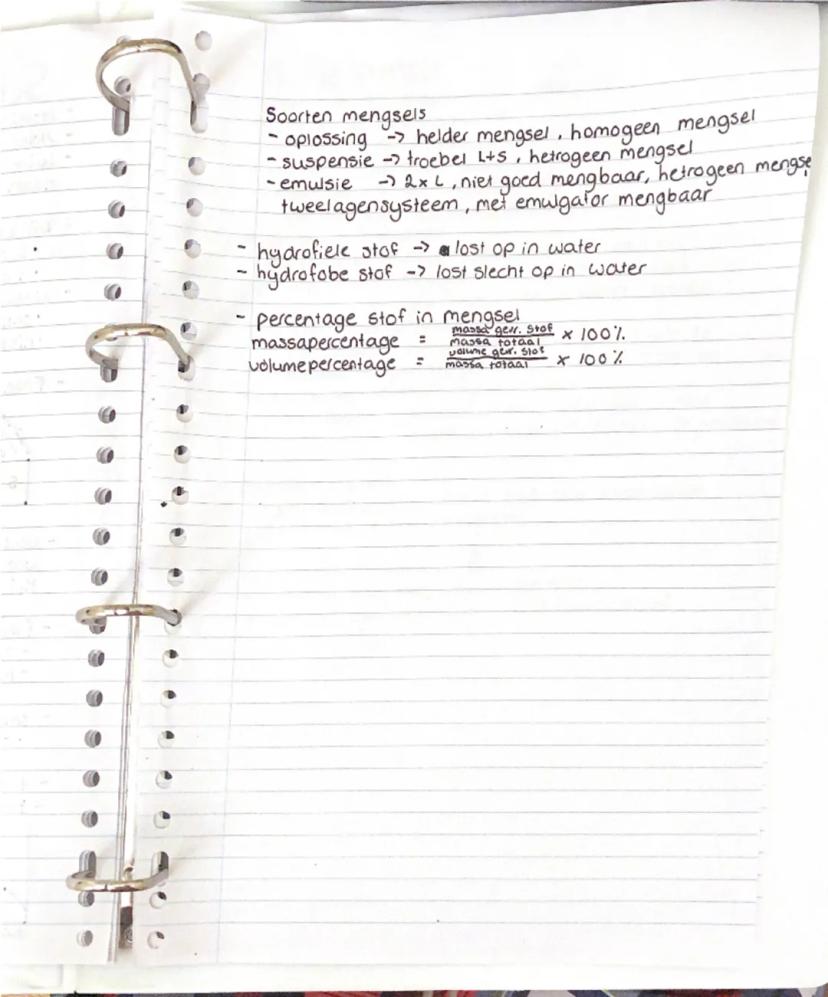 Soorten mengsels
- oplossing -> helder mengsel, homogeen mengsel
- suspensie -> troebel L+S, hetrogeen mengsel
- emulsie -> 2x L, niet goed mengbaar, hetrogeen mengsel
tweelagensysteem, met emulgator mengbaar
- hydrofiele stof -> lost op in water
- hydrofobe stof -> lost slecht op in water
- percentage stof in mengsel
massapercentage = massa gevr. stof / massa totaal x 100%
volumepercentage = volume gevr. stof / massa totaal x 100%